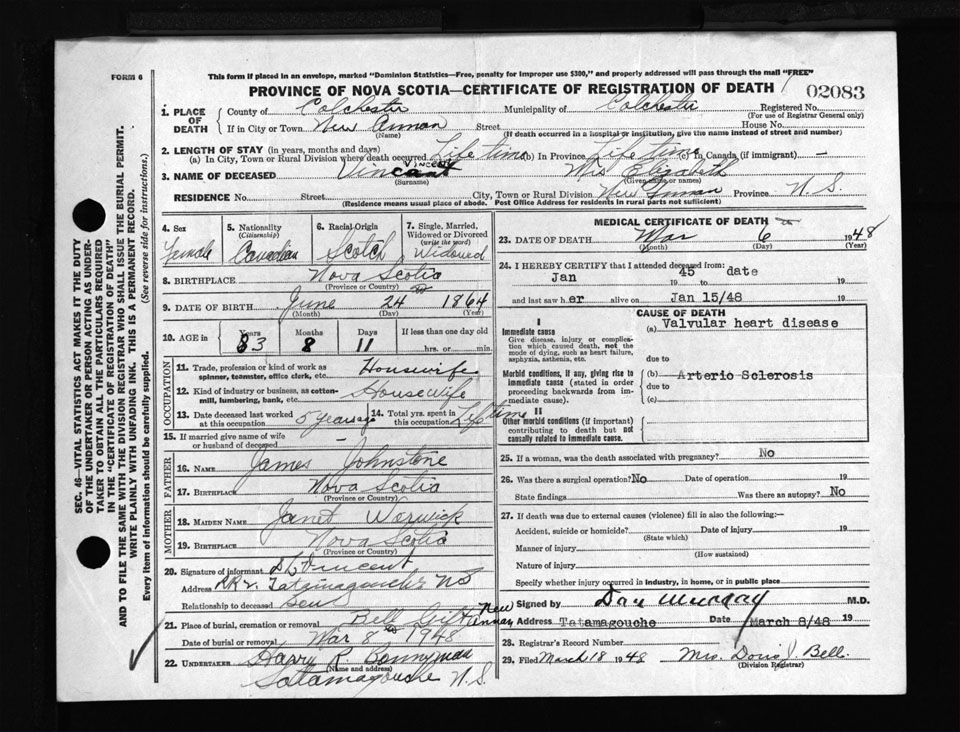 FORM 6
This form if placed in an envelope, marked "Dominion Statistics—Free, penalty for improper use $300," and properly addressed will pass through the mail "FREE"
PROVINCE OF NOVA SCOTIA—CERTIFICATE OF REGISTRATION OF DEATH
02083
1. PLACE OF DEATH
County of Colchester Municipality of Colchester Registered No.
(For use of Registrar General only)
If in City or Town New Annan Street House No.
(Name) (If death occurred in a hospital or institution, give the name instead of street and number)
2. LENGTH OF STAY (in years, months and days)
(a) In City, Town or Rural Division where death occurred Life time (b) In Province Life time (c) In Canada (if immigrant) —
VINCENT
3. NAME OF DECEASED Vincent Mrs Elizabeth
(Surname) (Given name or names)
RESIDENCE No. Street City, Town or Rural Division New Annan Province N. S.
(Residence means usual place of abode. Post Office Address for residents in rural parts not sufficient)
4. Sex
Female
5. Nationality
(Citizenship)
Canadian
6. Racial Origin
Scotch
7. Single, Married, Widowed or Divorced
(write the word)
Widowed
8. BIRTHPLACE Nova Scotia
(Province or Country)
9. DATE OF BIRTH June 24 1864
(Month) (Day) (Year)
10. AGE in Years Months Days If less than one day old
83 8 11 hrs. or min.
OCCUPATION
11. Trade, profession or kind of work as spinner, teamster, office clerk, etc. Housewife
12. Kind of industry or business, as cotton-mill, lumbering, bank, etc. Housewife
13. Date deceased last worked at this occupation 5 years ago
14. Total yrs. spent in this occupation Life time
15. If married give name of wife or husband of deceased —
FATHER
16. NAME James Johnstone
17. BIRTHPLACE Nova Scotia
(Province or Country)
MOTHER
18. MAIDEN NAME Janet Warwick
19. BIRTHPLACE Nova Scotia
(Province or Country)
20. Signature of informant Vincent
Address RR 2. Tatamagouche NS
Relationship to deceased Son
21. Place of burial, cremation or removal Bell New Annan
Date of burial or removal Mar 8 1948
22. UNDERTAKER Harry R. Bonnyman
(Name and address)
Tatamagouche N. S.
MEDICAL CERTIFICATE OF DEATH
23. DATE OF DEATH Mar 6 1948
(Month) (Day) (Year)
24. I HEREBY CERTIFY that I attended deceased from:
Jan 45 date
19 to 19
and last saw h er alive on Jan 15/48 19
CAUSE OF DEATH
I
Immediate cause
Give disease, injury or complication which caused death, not the mode of dying, such as heart failure, asphyxia, asthenia, etc.
(a) Valvular heart disease
due to
Morbid conditions, if any, giving rise to immediate cause (stated in order proceeding backwards from immediate cause).
(b) Arterio Sclerosis
due to
(c)
II
Other morbid conditions (if important) contributing to death but not causally related to immediate cause.
25. If a woman, was the death associated with pregnancy? No
26. Was there a surgical operation? No Date of operation 19
State findings Was there an autopsy? No
27. If death was due to external causes (violence) fill in also the following:—
Accident, suicide or homicide? Date of injury 19
(State which)
Manner of injury
(How sustained)
Nature of injury
Specify whether injury occurred in industry, in home, or in public place
Signed by Dan Murray M.D.
Address Tatamagouche Date March 8/48 19
28. Registrar's Record Number
29. Filed March 18 1948 Mrs. Doris J. Bell.
(Division Registrar)
SEC. 46—VITAL STATISTICS ACT MAKES IT THE DUTY
OF THE UNDERTAKER OR PERSON ACTING AS UNDER-
TAKER TO OBTAIN ALL THE PARTICULARS REQUIRED
IN THE "CERTIFICATE OF REGISTRATION OF DEATH"
AND TO FILE THE SAME WITH THE DIVISION REGISTRAR WHO SHALL ISSUE THE BURIAL PERMIT.
WRITE PLAINLY WITH UNFADING INK. THIS IS A PERMANENT RECORD.
Every item of information should be carefully supplied. (See reverse side for instructions.)